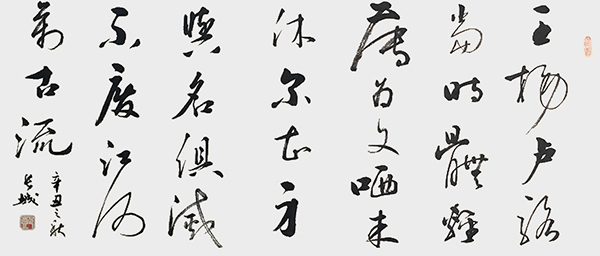 王楊卢駱
當時體輕
薄為文哂未
休尔曹身
與名俱滅
不廢江河
萬古流
辛丑之秋
長城